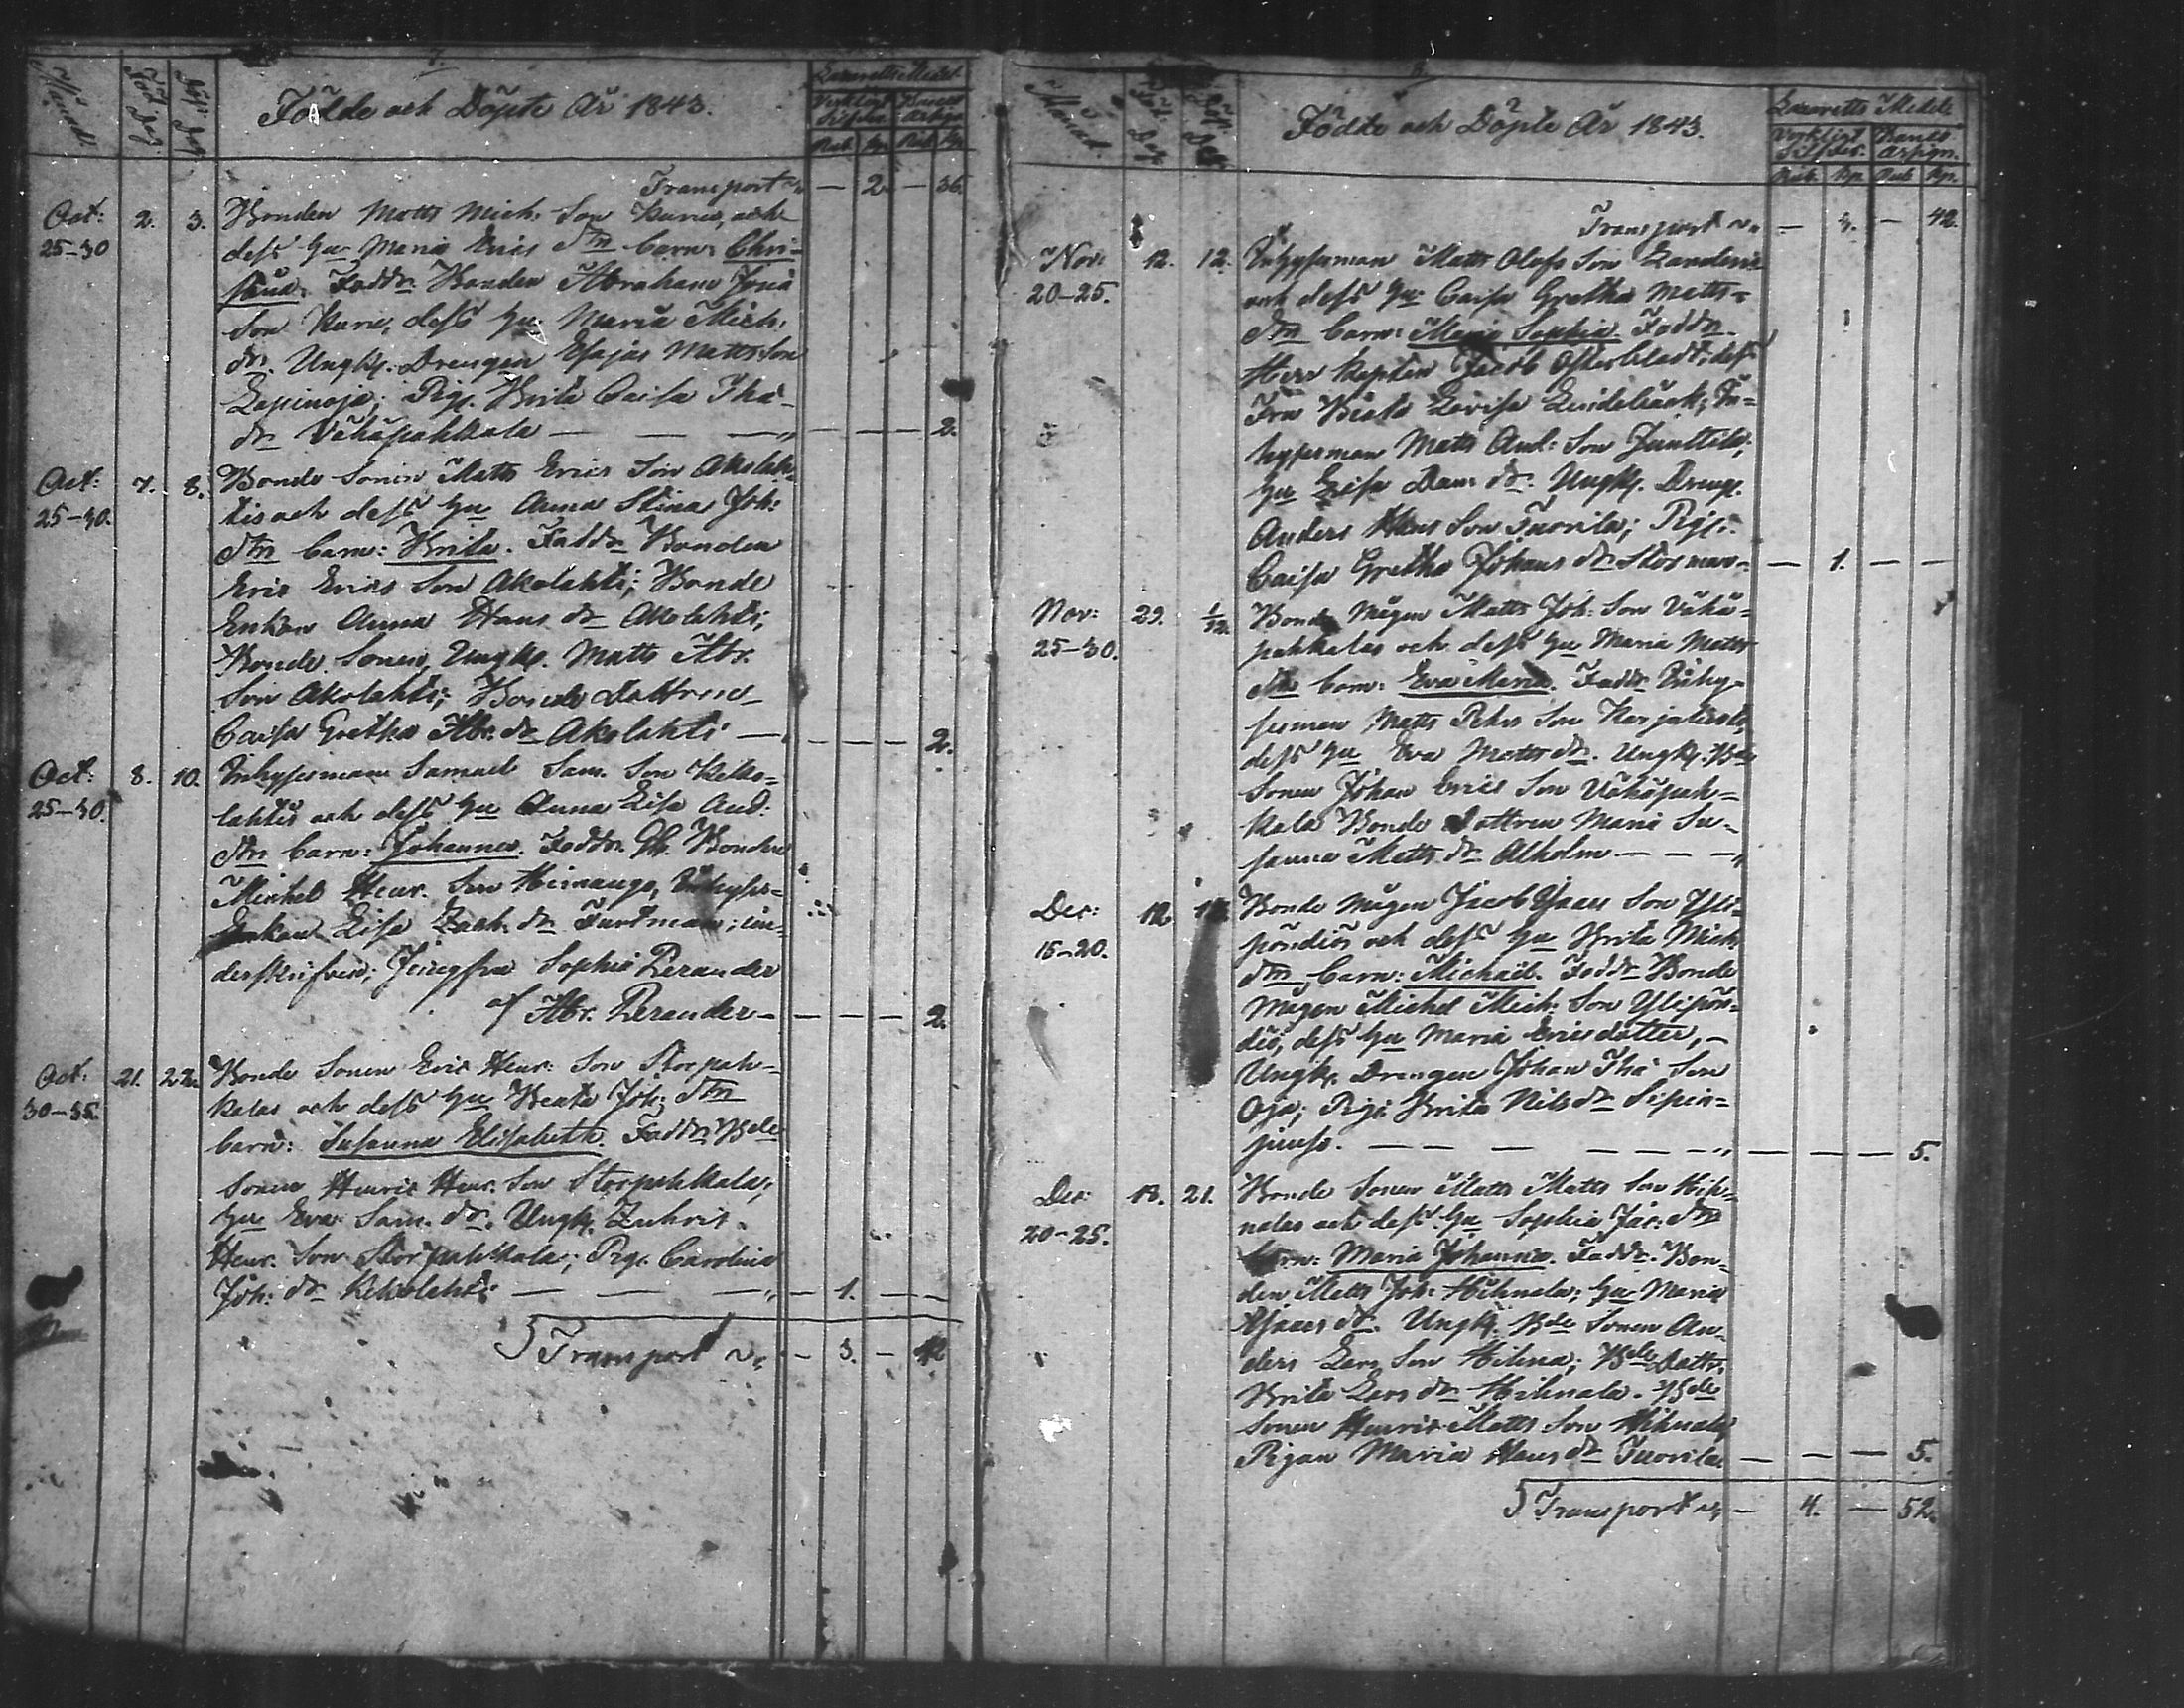 7.
Månad.
Föd. Dag.
Döp. Dag.
Födde och Döpte År 1843.
Lazaretts Medel.
Verkligt Silfver. Banco Assign.
Rub. Kp. Rub. Kp.
Transport — 2. — 36.
Oct: 2. 3. Bonden Matts Mich: Son Kunes, och
25–30 dess Hu Maria Erics Dtrs barn: Chri-
stina. Faddr. Bonden Abraham
Son Dess Hu Maria Mich.
dr. Ungk. Drengen Esajas Matts Son
Lapinoja; Pig. Brita Caisa Tho-
dr Vähäpakkala — — — 2.
Oct: 7. 8. Bonde Sonen Matts Erics Son Akolah-
25–30. tis och dess Hu Anna Stina Joh:
Dtrs barn: Brita. Faddr Bonden
Eric Erics Son Akolahti; Bonde
Enkan Anna Hans dr Akolahti;
Bonde Sonen, Ungk. Matts Abr.
Son Akolahti; Bonde Dottren
Caisa Gretha Abr. dr Akolahti — 2.
Oct: 8. 10. Inhysesman Samuel Sam. Son Keko-
25–30. lahtis och dess Hu Anna Lisa And:
Dtrs barn: Johannes. Faddr. Bonden
Michel Henr. Son Himango, Inhyses-
Enkan Lisa Zach. dr Furtman; un-
derskrifven; Jungfru Sophie Perander
af Abr. Perander — 2.
Oct: 21. 22. Bonde Sonen Eric Henr: Son Storpah-
30–35. kalas och dess Hu Beata Joh: Dtrs
barn: Susanna Elisabeth. Faddr. Bde
Sonen Henric Henr. Son Storpahkala;
Hu Eva Sam. dr. Ungk.
Henr. Son Storpahkala; Pig. Carolina
Joh: dr Kekolahti — — — 1. — —
Transport — 3. — 42
8.
Månad.
Föd. Dag.
Döp. Dag.
Födde och Döpte År 1843.
Lazaretts Medel.
Verkligt Silfver. Banco Assign.
Rub. Kp. Rub. Kp.
Transport — 3. — 42.
Nov: 12. 12. Inhysesman Matts Olofs Son
20–25. och dess Hu Caisa Gretha Matts-
Dtrs barn: Maria Sophia. Faddr.
Herr Kapten Jacob Österbladt, dess
Fru Beata Lovisa Lindebäck; In-
hysesman Matts And: Son Junttila;
Hu Lisa Dan. dr. Ungk. Dreng.
Anders Hans Son Tuorila; Pig.
Caisa Gretha Johans dr — 1. — —
Nov: 29. 1/12. Bonde Mågen Matts Joh: Son Vähä-
25–30. pahkalas och dess Hu Maria Matts
dtrs barn: Eva Maria. Faddr Inhy-
sesman Matts Pehrs Son
dess Hu Eva Matts dr. Ungk. Bde
Sonen Johan Erics Son Vähäpah-
kala Bonde Dottren Maria Su-
sanna Matts dr Alholm — — —
Dec: 12 Bonde Mågen Jacob Isaacs Son Yli-
15–20. pöndiös och dess Hu Brita Mich:
Dtrs barn: Michaël. Faddr Bonde
Mågen Michel Mich: Son Ylipön-
diö, dess Hu Maria Ericsdotter, —
Ungk. Drengen Johan Tho: Son
Oja; Pig: Brita Nils dr
— — — — — 5.
Dec: 18. 21. Bonde Sonen Matts Matts Son Hih-
20–25. nalas och dess Hu Sophia Jac. Dtrs
barn: Maria Johanna. Faddr. Bon-
den Matts Joh: Hihnala; Hu Maria
Isaacs dr. Ungk. Bde Sonen An-
ders Lars Son Hihna; Bde Dottr.
Brita Lars dr Hihnala. Bde
Sonen Henric Matts Son Hihnala
Pigan Maria Hans dr Tuorila — — — 5.
Transport — 4. — 52.